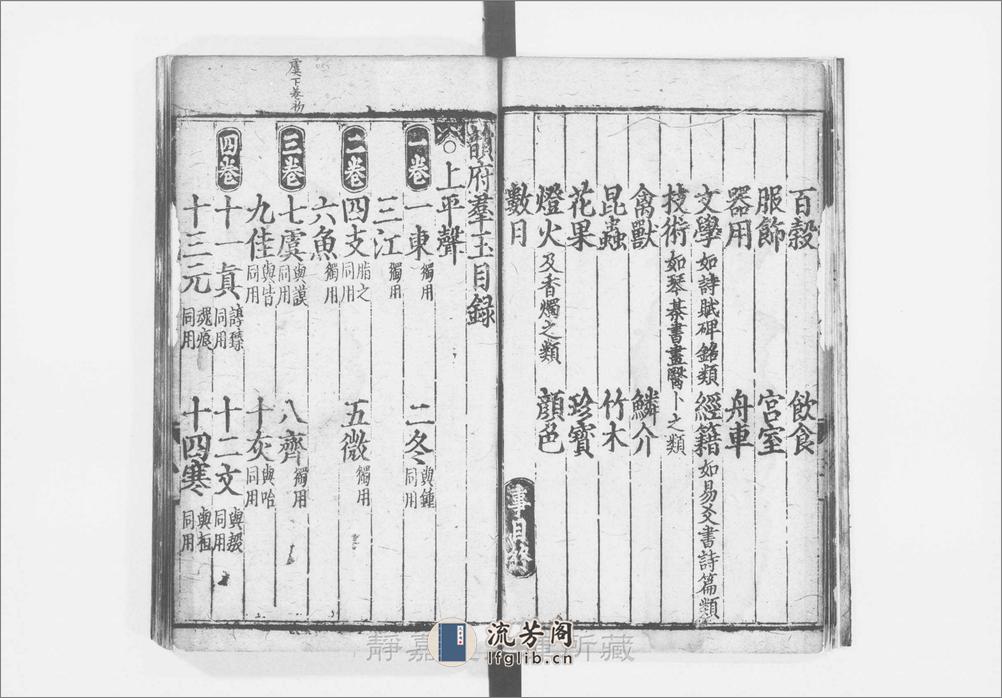 百穀 飲食
服飾 宮室
器用 舟車
文學 如詩賦碑銘類 經籍 如易爻書詩篇類
技術 如琴棊書畫醫卜之類
禽獸 鱗介
昆蟲 竹木
花果 珍寶
燈火 及香燭之類 顏色
數目 事目終
韻府羣玉目録
上平聲
一卷 一東 獨用 二冬 與鍾同用
三江 獨用
二卷 四支 脂之同用 五微 獨用
六魚 獨用
三卷 七虞 與謨同用 八齊 獨用
九佳 與皆同用 十灰 與咍同用
四卷 十一真 諄臻同用 十二文 與殷同用
十三元 魂痕同用 十四寒 與桓同用
虞下卷初
靜嘉 所藏
流芳阁
lfglib.cn